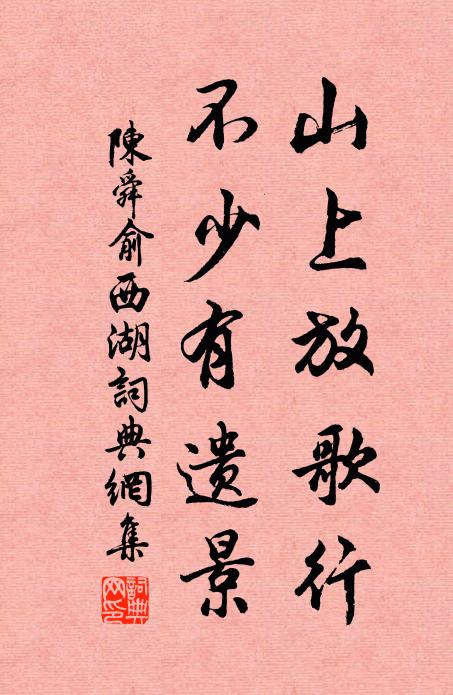 山上放歌行
不少有遗景
陳舜俞西湖詞典網集
詞典网印